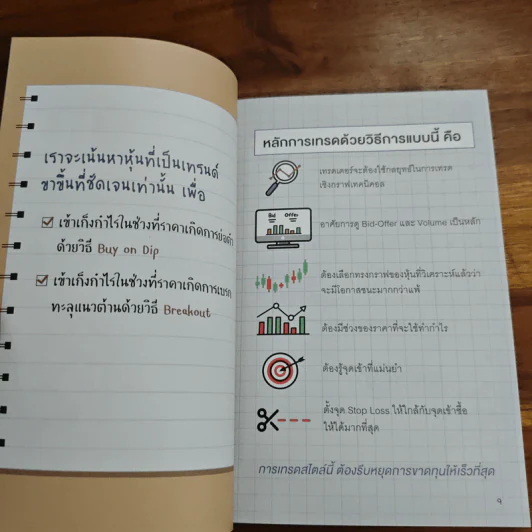 เราจะเน้นหาหุ้นที่เป็นเทรนด์
ขาขึ้นที่ชัดเจนเท่านั้น เพื่อ
เข้าเก็งกำไรในช่วงที่ราคาเกิดการย่อตัว
ด้วยวิธี Buy on Dip
เข้าเก็งกำไรในช่วงที่ราคาเกิดการเบรก
ทะลุแนวต้านด้วยวิธี Breakout
หลักการเทรดด้วยวิธีการแบบนี้ คือ
เทรดเดอร์จะต้องใช้กลยุทธ์ในการเทรด
เชิงกราฟเทคนิคอล
Bid Offer
อาศัยการดู Bid-Offer และ Volume เป็นหลัก
ต้องเลือกทรงกราฟของหุ้นที่วิเคราะห์แล้วว่า
จะมีโอกาสชนะมากกว่าแพ้
ต้องมีช่วงของราคาที่จะใช้ทำกำไร
ต้องรู้จุดเข้าที่แม่นยำ
ตั้งจุด Stop Loss ให้ใกล้กับจุดเข้าซื้อ
ให้ได้มากที่สุด
การเทรดสไตล์นี้ ต้องรีบหยุดการขาดทุนให้เร็วที่สุด